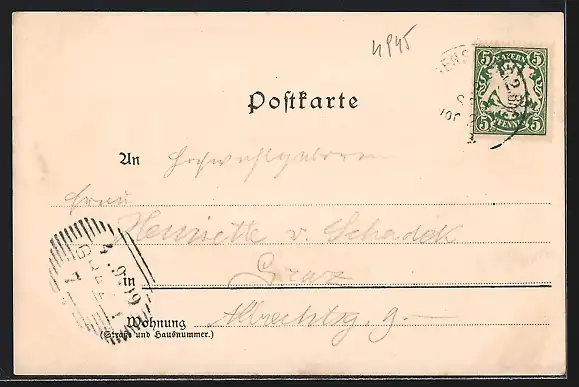 4945
5 BAYERN 5
5 PFENNIG 5
Postkarte
An Hochwohlgeboren
Frau
Henriette v. Schadek
in Graz
Wohnung Albrechtsg. 9
(Straße und Hausnummer.)